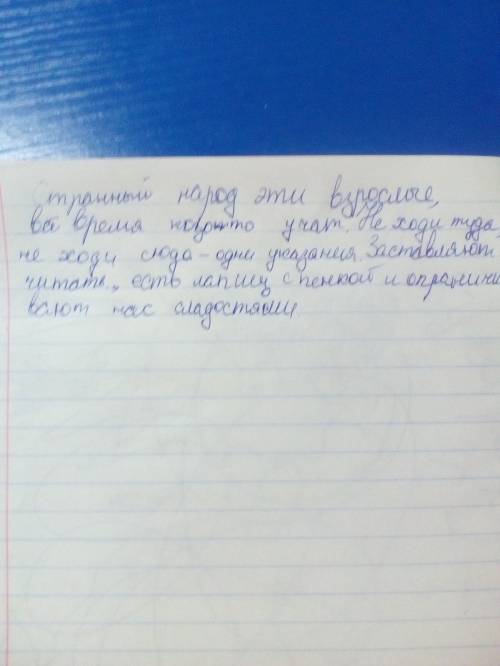 Странный народ эти взрослые,
всё время кого-то учат. Не ходи туда,
не ходи сюда - одни указания. Заставляют
читать, есть лапшу с пенкой и ограничи
вают нас сладостями